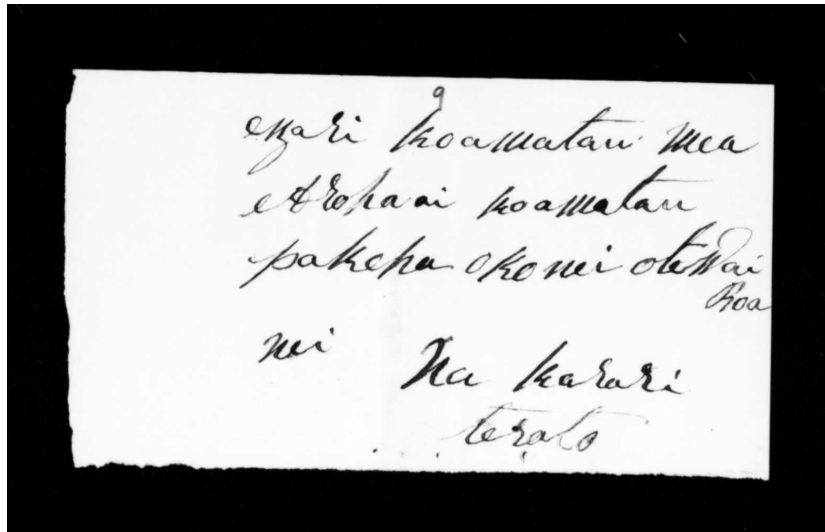 9
engari koamatau mea
e Aroha ai koamatau
pakeha okonei oteWai
Roa
nei Na Karari
teroto